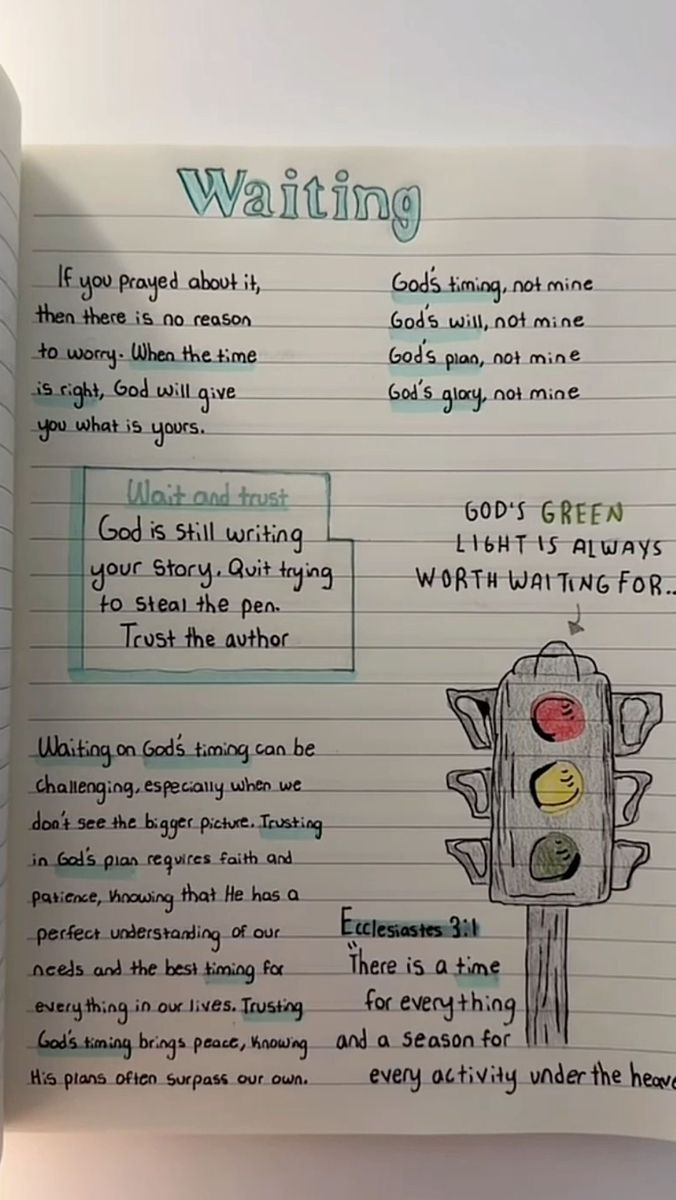 Waiting
If you prayed about it,
then there is no reason
to worry. When the time
is right, God will give
you what is yours.
God's timing, not mine
God's will, not mine
God's plan, not mine
God's glory, not mine
Wait and trust
God is still writing
your story. Quit trying
to steal the pen.
Trust the author
GOD'S GREEN
LIGHT IS ALWAYS
WORTH WAITING FOR..
Waiting on God's timing can be
challenging, especially when we
don't see the bigger picture. Trusting
in God's plan requires faith and
patience, knowing that He has a
perfect understanding of our
needs and the best timing for
everything in our lives. Trusting
God's timing brings peace, knowing
His plans often surpass our own.
Ecclesiastes 3:1
"There is a time
for everything
and a season for
every activity under the